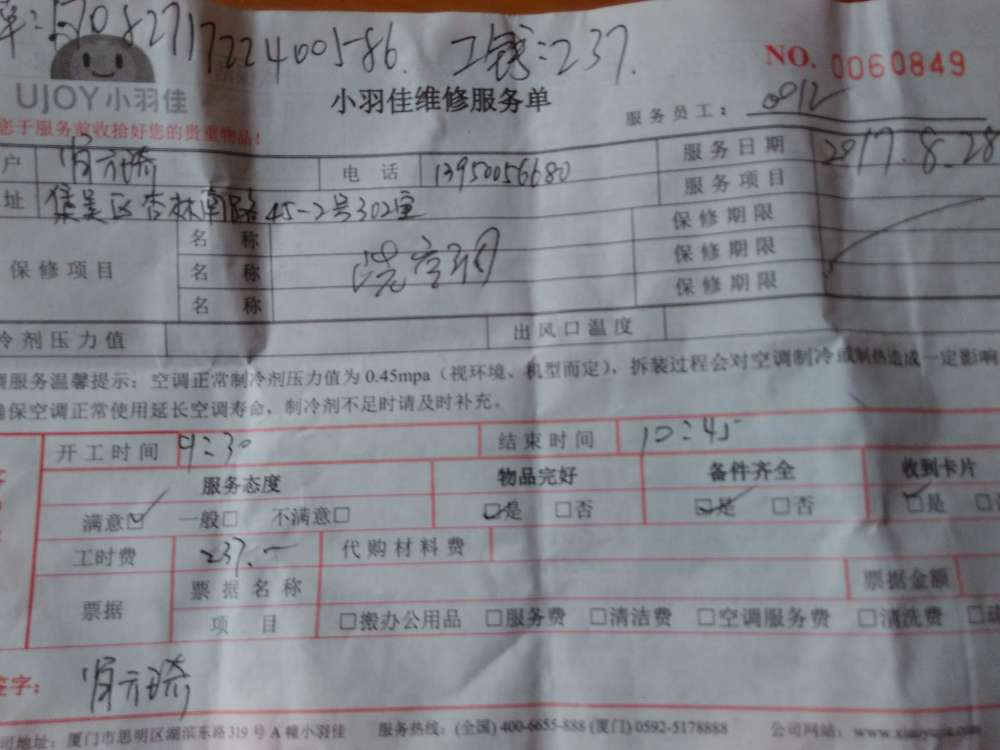 单:1708271722400586. 工钱:237.
NO. 0060849
UJOY小羽佳
小羽佳维修服务单
服务员工: 0012
您于服务前收拾好您的贵重物品!
户 电话 13950056680 服务日期 2017.8.28
址 集美区杏林南路45-2号302室 服务项目
保修项目 名称 洗空调 保修期限
名称 保修期限
名称 保修期限
冷剂压力值 出风口温度
服务温馨提示:空调正常制冷剂压力值为0.45mpa(视环境、机型而定),拆装过程会对空调制冷或制热造成一定影响
确保空调正常使用延长空调寿命,制冷剂不足时请及时补充。
开工时间 9:30 结束时间 10:45
服务态度 物品完好 备件齐全 收到卡片
满意☑ 一般□ 不满意□ ☑是 □否 ☑是 □否 ☑是 □
工时费 237.— 代购材料费
票据 票据名称 票据金额
项目 □搬办公用品 □服务费 □清洁费 □空调服务费 □清洗费 □
签字:
司地址:厦门市思明区湖滨东路319号A幢小羽佳 服务热线:(全国) 400-6655-888 (厦门) 0592-5178888 公司网站:www.xiaoyujia.com